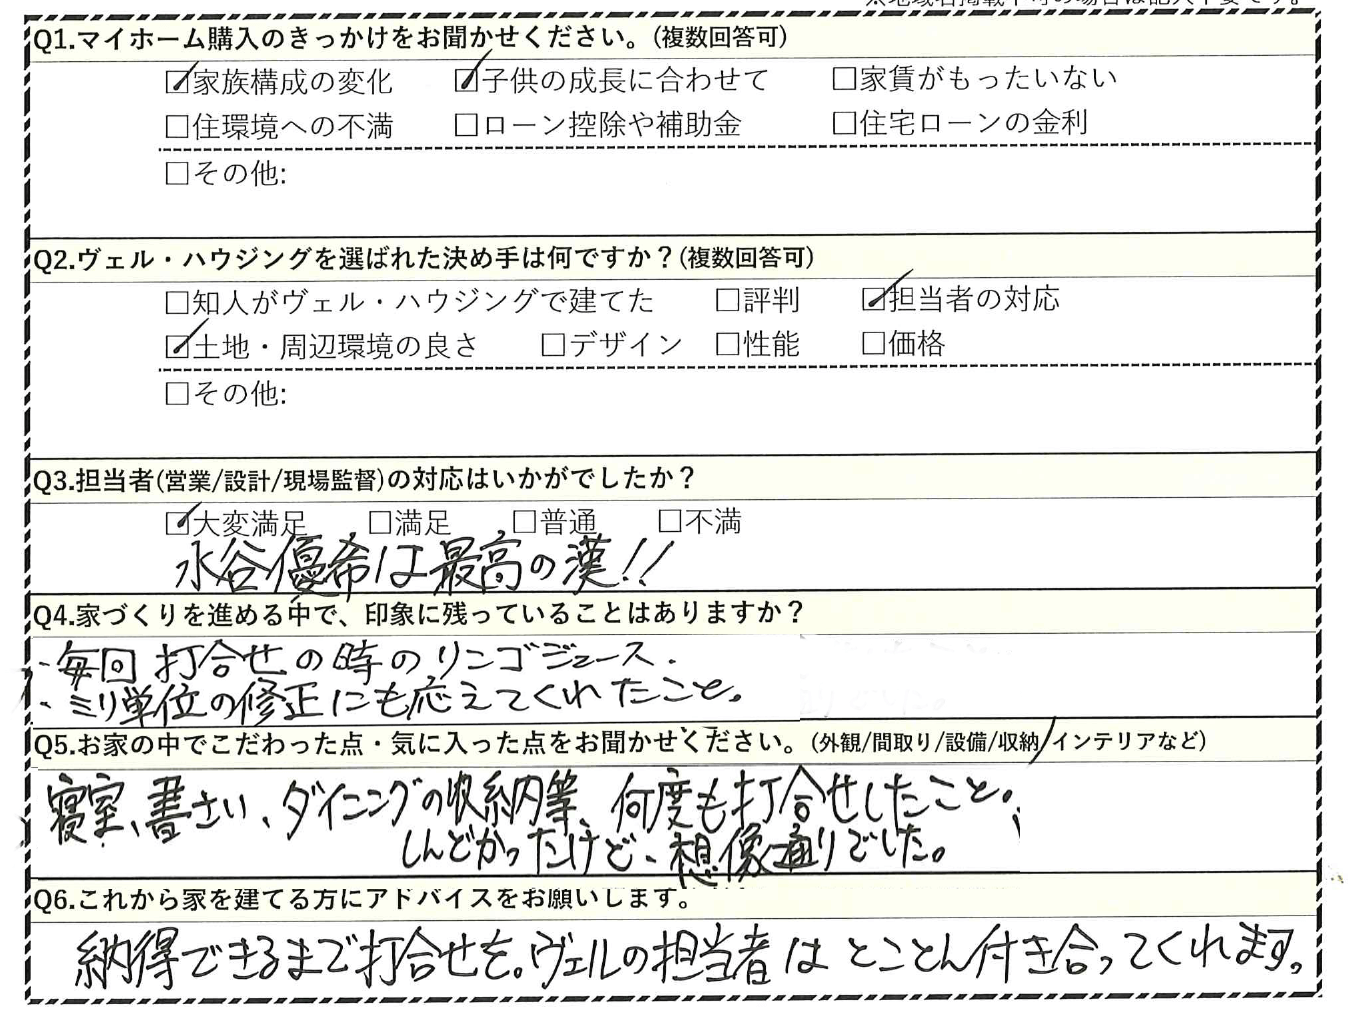 ※地域名掲載不可の場合は記入不要です。
Q1.マイホーム購入のきっかけをお聞かせください。(複数回答可)
☑家族構成の変化 ☑子供の成長に合わせて □家賃がもったいない
□住環境への不満 □ローン控除や補助金 □住宅ローンの金利
□その他:
Q2.ヴェル・ハウジングを選ばれた決め手は何ですか？(複数回答可)
□知人がヴェル・ハウジングで建てた □評判 ☑担当者の対応
☑土地・周辺環境の良さ □デザイン □性能 □価格
□その他:
Q3.担当者(営業/設計/現場監督)の対応はいかがでしたか？
☑大変満足 □満足 □普通 □不満
水谷優希は最高の漢!!
Q4.家づくりを進める中で、印象に残っていることはありますか？
・毎回 打合せの時のリンゴジュース.
・ミリ単位の修正にも応えてくれたこと。
Q5.お家の中でこだわった点・気に入った点をお聞かせください。(外観/間取り/設備/収納/インテリアなど)
寝室、書さい、ダイニングの収納等、何度も打合せしたこと。
しんどかったけど、想像通りでした。
Q6.これから家を建てる方にアドバイスをお願いします。
納得できるまで打合せを。ヴェルの担当者はとことん付き合ってくれます。